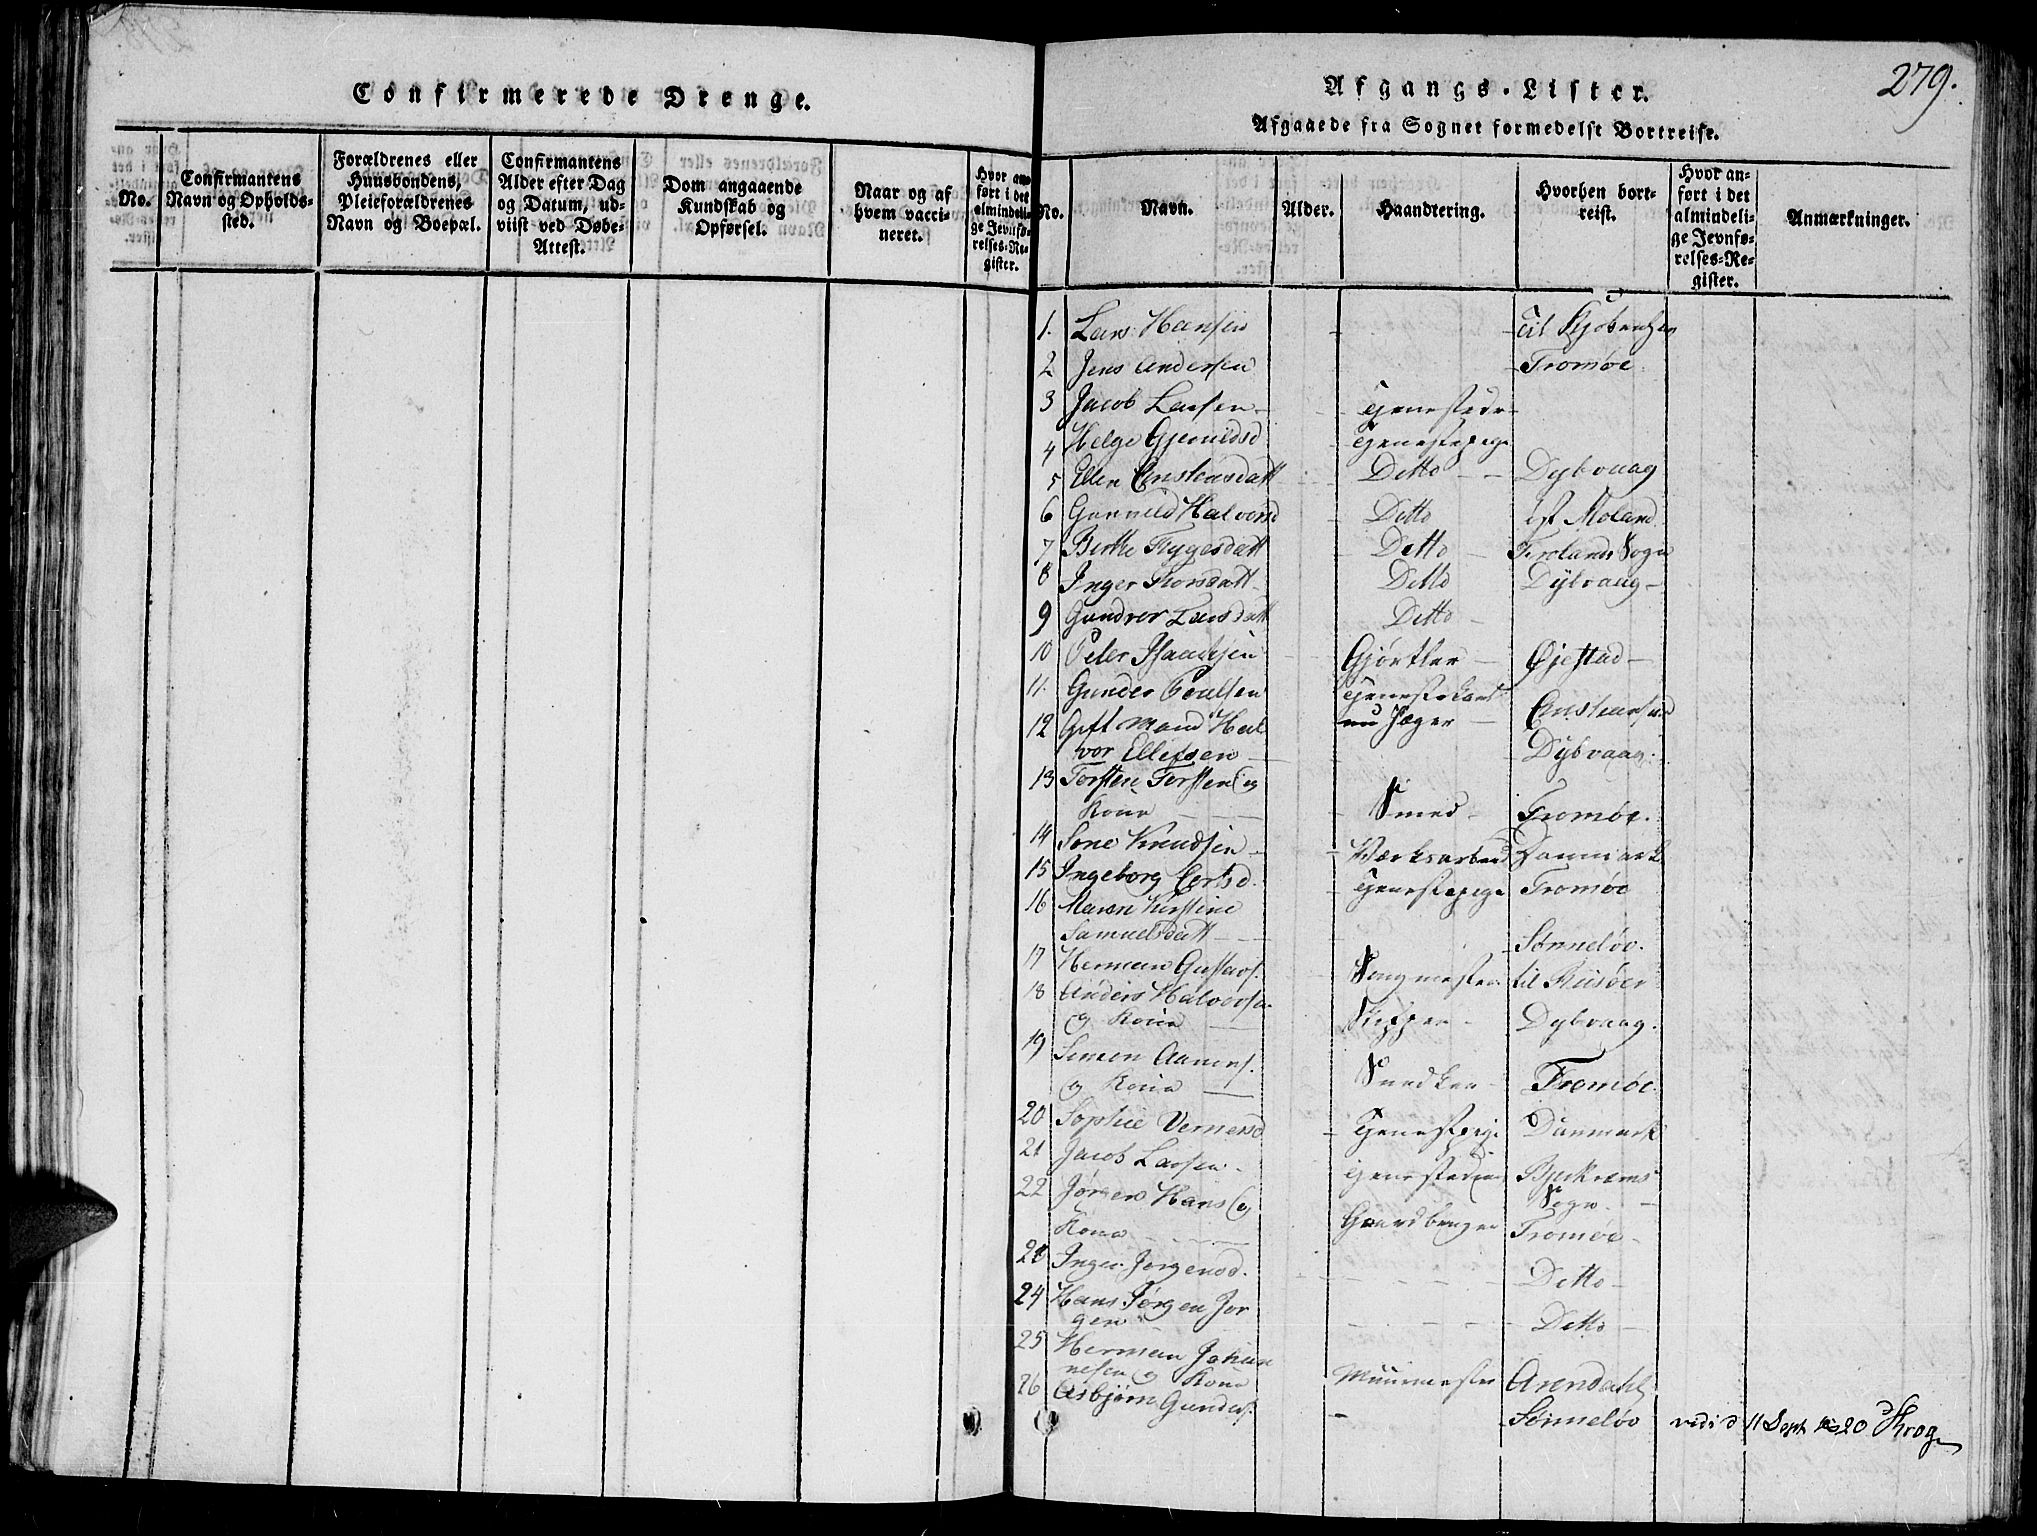 Confirmerede Drenge.
No.
Confirmantens
Navn og Opholds-
sted.
Forældrenes eller
Huusbondens,
Pleieforældrenes
Navn og Boepæl.
Confirmantens
Alder efter Dag
og Datum, ud-
viist ved Døbe-
Attest.
Dom angaaende
Kundskab og
Opførsel.
Naar og af
hvem vacci-
neret.
Hvor an-
ført i det
almindeli-
ge Jevnfø-
relses-Re-
gister.
279.
Afgangs-Lister.
Afgaaede fra Sognet formedelst Bortreise.
No.
Navn.
Alder.
Haandtering.
Hvorhen bort-
reist.
Hvor an-
ført i det
almindeli-
ge Jevnfø-
relses-Re-
gister.
Anmærkninger.
1. Lars Hansen - Til Kjøbenhavn
2 Jens Andersen - Tromøe.
3 Jacob Larsen - Tjenestedr
4 Helge Gjeruldsd - Tjenestepige
5 Ellen Christensdatt Ditto - Dybvaag
6 Gunnild Halvorsd Ditto øst Moland
7 Birthe Tygesdatt - Ditto - Frolands Sogn
8 Inger Thorsdatt - Ditto Dybvaag -
9 Gundror Larsdatt Ditto -
10 Peter Isaachsen Gjørtler - Øjestad -
11. Gunder Poulsen Tjenestekarl
nu Jæger - Christiansand
12 Gift Mand Hal
vor Ellefsen - Dybvaag.
13 Torsten Torsten og
Kone - Smed - Tromøe.
14 Sone Knudsen - Værksarbeid Danmark
15 Ingeborg Carlsd. - Tjenestepige Tromøe
16 Maren Kirstine
Samuelsdatt - Sønneløv.
17 Herman Gustavs. til Riisøer
18 Anders Halvorsen
og Kone - Skipper - Dybvaag.
19 Simen Aanens.
og Kone - Snedker - Tromøe.
20 Sophie Vernersd - Tjenestpige Danmark
21 Jacob Larsen - Tjenestedreng
Sogn. -
22 Jørgen Hans og
Kone - Gaardbruger Tromøe -
23 Inger Jørgensd. - Ditto -
24 Hans Jørgen Jør
gen - Ditto -
25 Herman Johan
nesen og Kone Muurmester Arendahl
26 Asbjørn Gunders. - Sønneløv
vidi d 11 Sept 1820 Krog